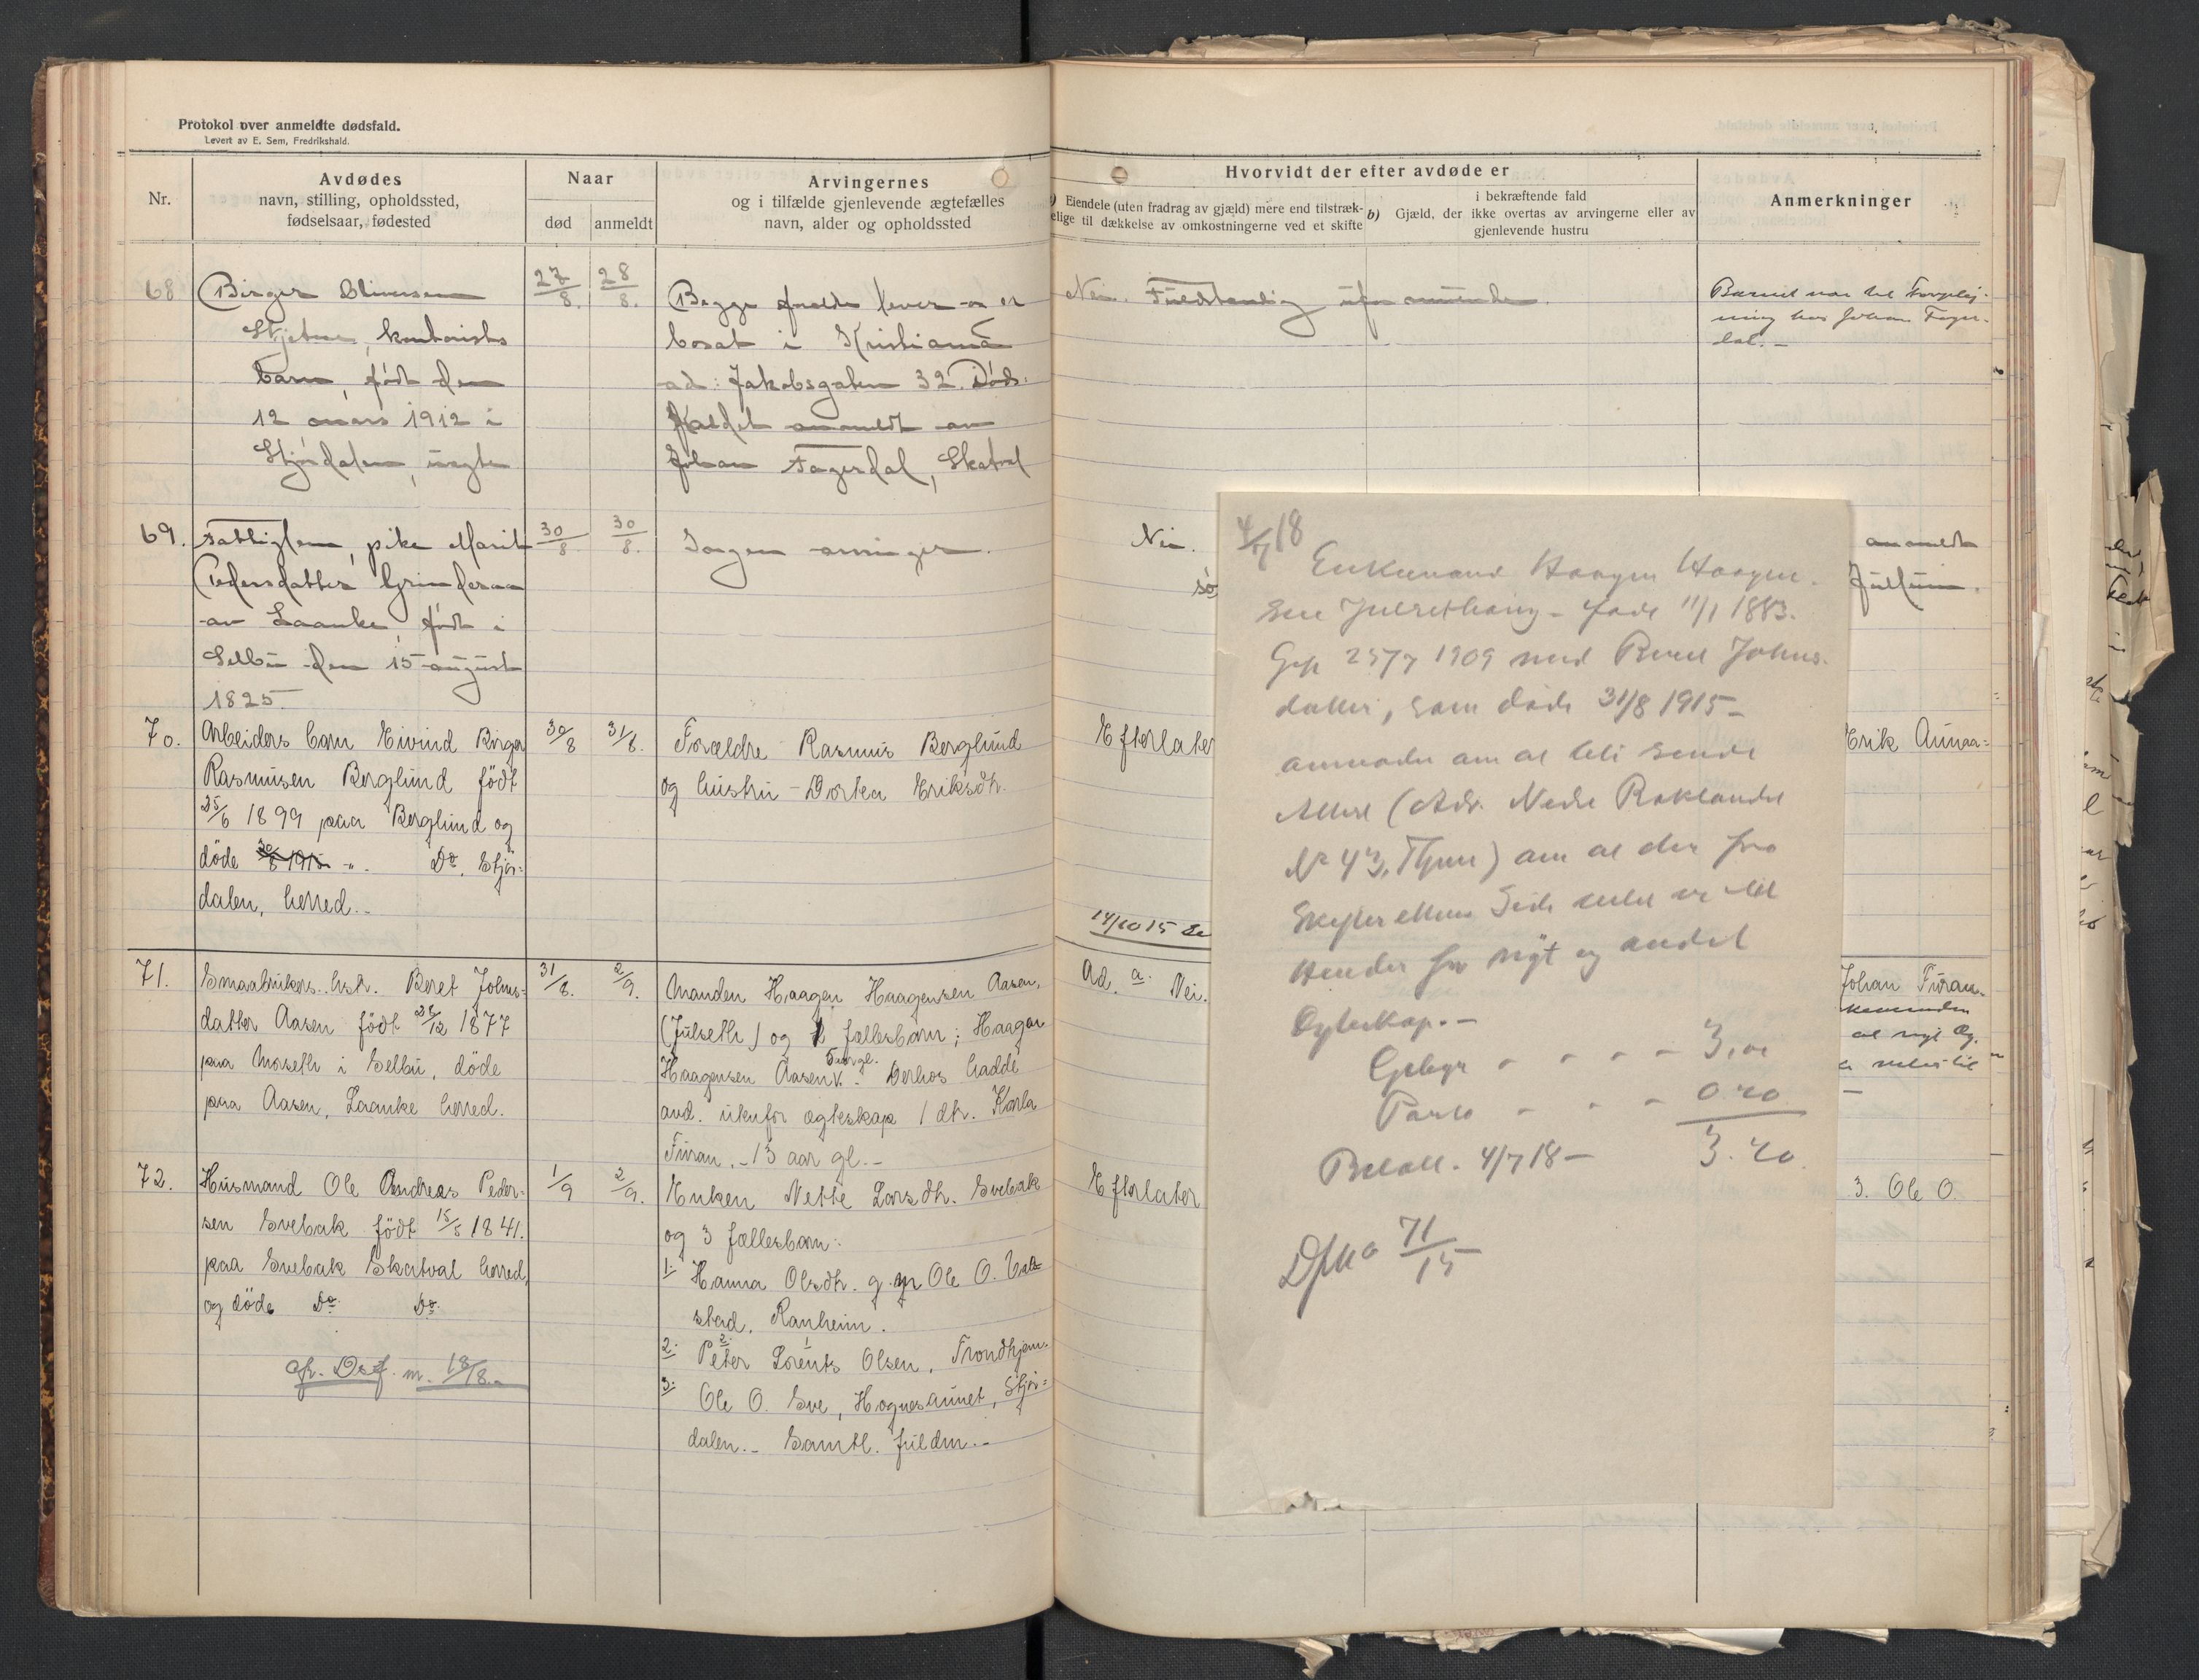 Protokol over anmeldte dødsfald.
Levert av E. Sem, Fredrikshald.
Nr.
Avdødes
navn, stilling, opholdssted,
fødselsaar, fødested
Naar
død
anmeldt
Arvingernes
og i tilfælde gjenlevende ægtefælles
navn, alder og opholdssted
Hvorvidt der efter avdøde er
Eiendele (uten fradrag av gjæld) mere end tilstræk-
elige til dækkelse av omkostningerne ved et skifte
b) Gjæld, der
i bekræftende fald
ikke overtas av arvingerne eller av
gjenlevende hustru
Anmerkninger
68
Birger Oliversen
kontorists
barn, født den
12 mars 1912 i
Stjørdalen, uægte
27/8.
28/8.
Begge forældre lever og er
bosat i Kristiania
ad: Jakobsgaten 32. Døds-
faldet anmeldt av
Johan Fagerdal, Skatval
Nei. Fuldstændig uformuende.
Barnet var til Forplei-
ning hos Johan Fager-
dal.-
69.
Fattiglem, pike Marit
Pedersdatter Grinderaa
av Laanke, født i
Selbu den 15 august
1825.
30/8.
30/8.
Ingen arvinger.
Nei.
anmeldt
70.
Arbeiders barn Eivind Birger
Rasmusen Berglund født
25/6 1899 paa Berglund og
døde 30/8 1915 -"- Do. Stjør=
dalen, herred.-
30/8
31/8.
Forældre Rasmus Berglund
og hustru - Dortea Eriksdtr.
Efterlater
Erik Aunaa=
14/10 15
71.
Smaabrukers. hstr. Beret Johns-
datter Aasen født 28/12 1877
paa Moseth i Selbu, døde
paa Aasen, Laanke herred.
31/8.
2/9.
Manden Haagen Haagensen Aasen,
(Julseth) og 1 fællesbarn; Haagen
Haagensen Aasen 5 aar gl. - Derhos hadde
avd. utenfor ægteskap 1 dtr. Karla
Furan. - 13 aar gl.-
Ad. a. Nei.
Johan Furan.
72.
Husmand Ole Andreas Peder-
sen Svebak født 15/5 1841.
paa Svebak Skatval herred,
og døde Do. Do.
cfr. Dsf. m. 18/8.-
1/9
2/9.
Enken Nette Larsdtr. Svebak
og 3 fællesbarn:
1. Hanna Olsdtr. g. m. Ole O.
stad, Ranheim.
2. Peter Lorents Olsen, Trondhjem.
3. Ole O. Sve, Hognesaunet, Stjør=
dalen.- Samtl. fuldm.-
Efterlater
3. Ole O.
4/7 18
Enkemand Haagen Haagen-
sen Julsethaug - født 11/1 1883.
Gift 25/7 1909 med Beret Johns-
datter, som døde 31/8 1915 -
anmoder om at bli sendt
Attest (Adr. Nedre Baklandet
No 43, Thjem) om at der fra
Skifterettens Side intet er til
Hinder for nyt og andet
Egteskap.-
Gebyr - - - - 3,00
Porto - - - 0.20
Betalt. 4/7 18 - 3.20
71/15